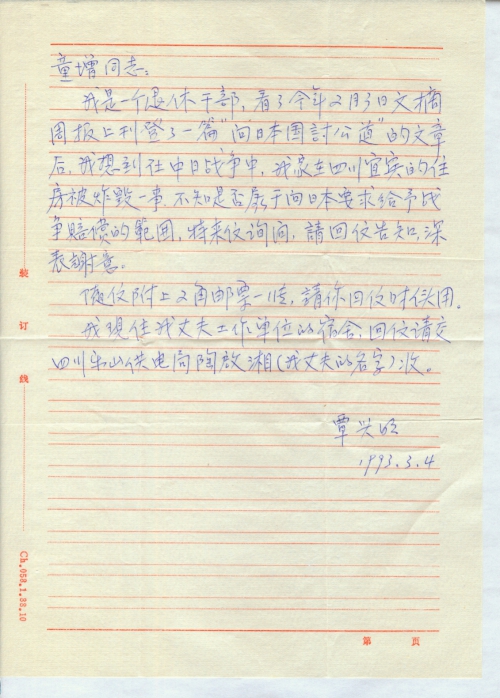 童增同志：
我是一个退休干部，看了今年2月3日文摘
周报上刊登了一篇"向日本国討公道"的文章
后，我想到在中日战争中，我家在四川宜宾的住
房被炸毁一事 不知是否属于向日本要求给予战
争賠償的範囲，特来信询问，請回信告知，深
表謝意。
随信附上2角邮票一枚，請你回信时使用。
我現住我丈夫工作单位的宿舍，回信请交
四川乐山供电局陶啟湘（我丈夫的名字）收。
覃兴
1993.3.4
装
订
线
Ch.058.1.88.10
第 页